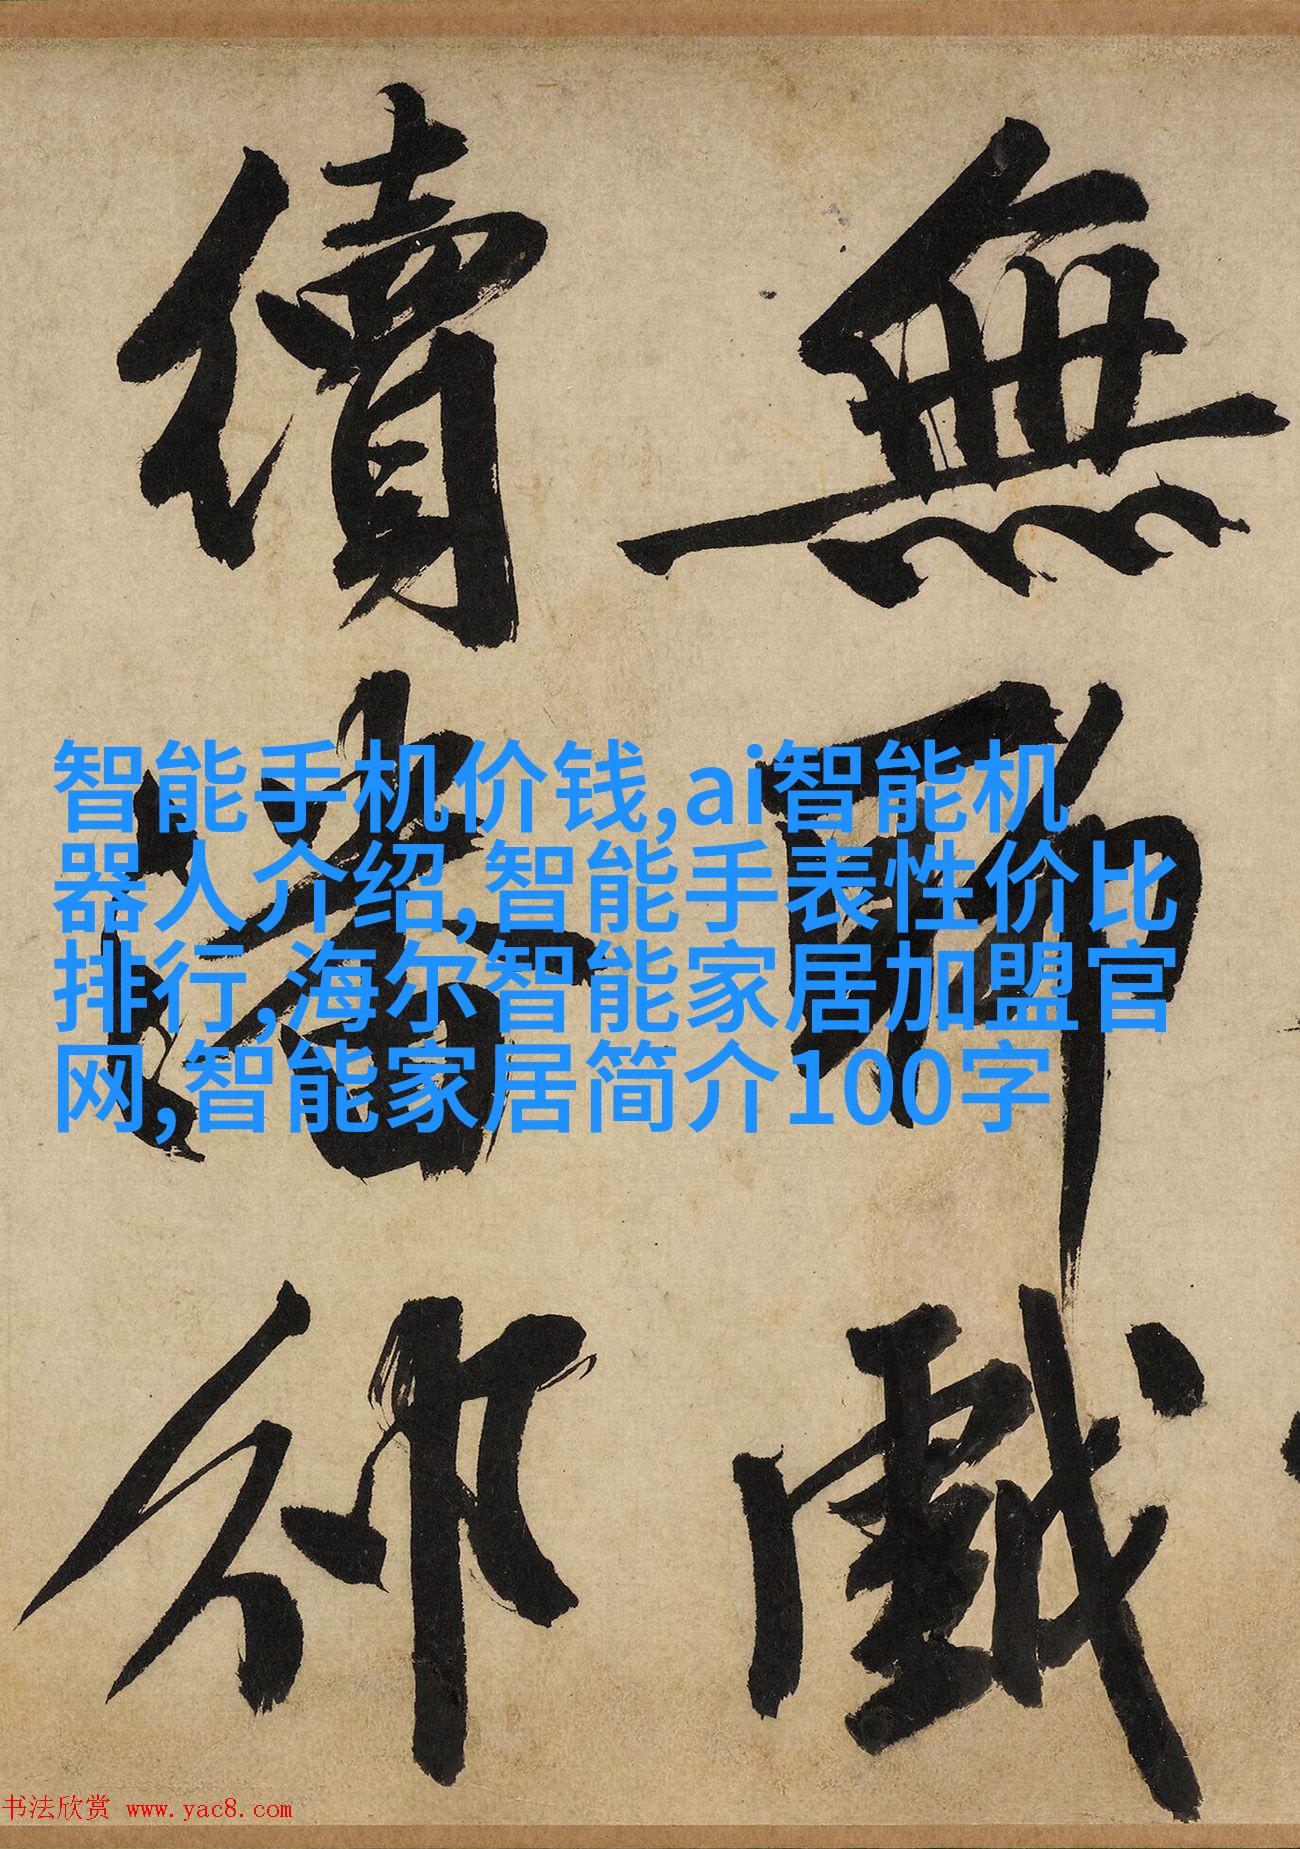 無聊戲
續潘邠
智能手机价钱,ai智能机
器人介绍,智能手表性价比
排行,海尔智能家居加盟官
网,智能家居简介100字
书法欣赏 www.yac8.com